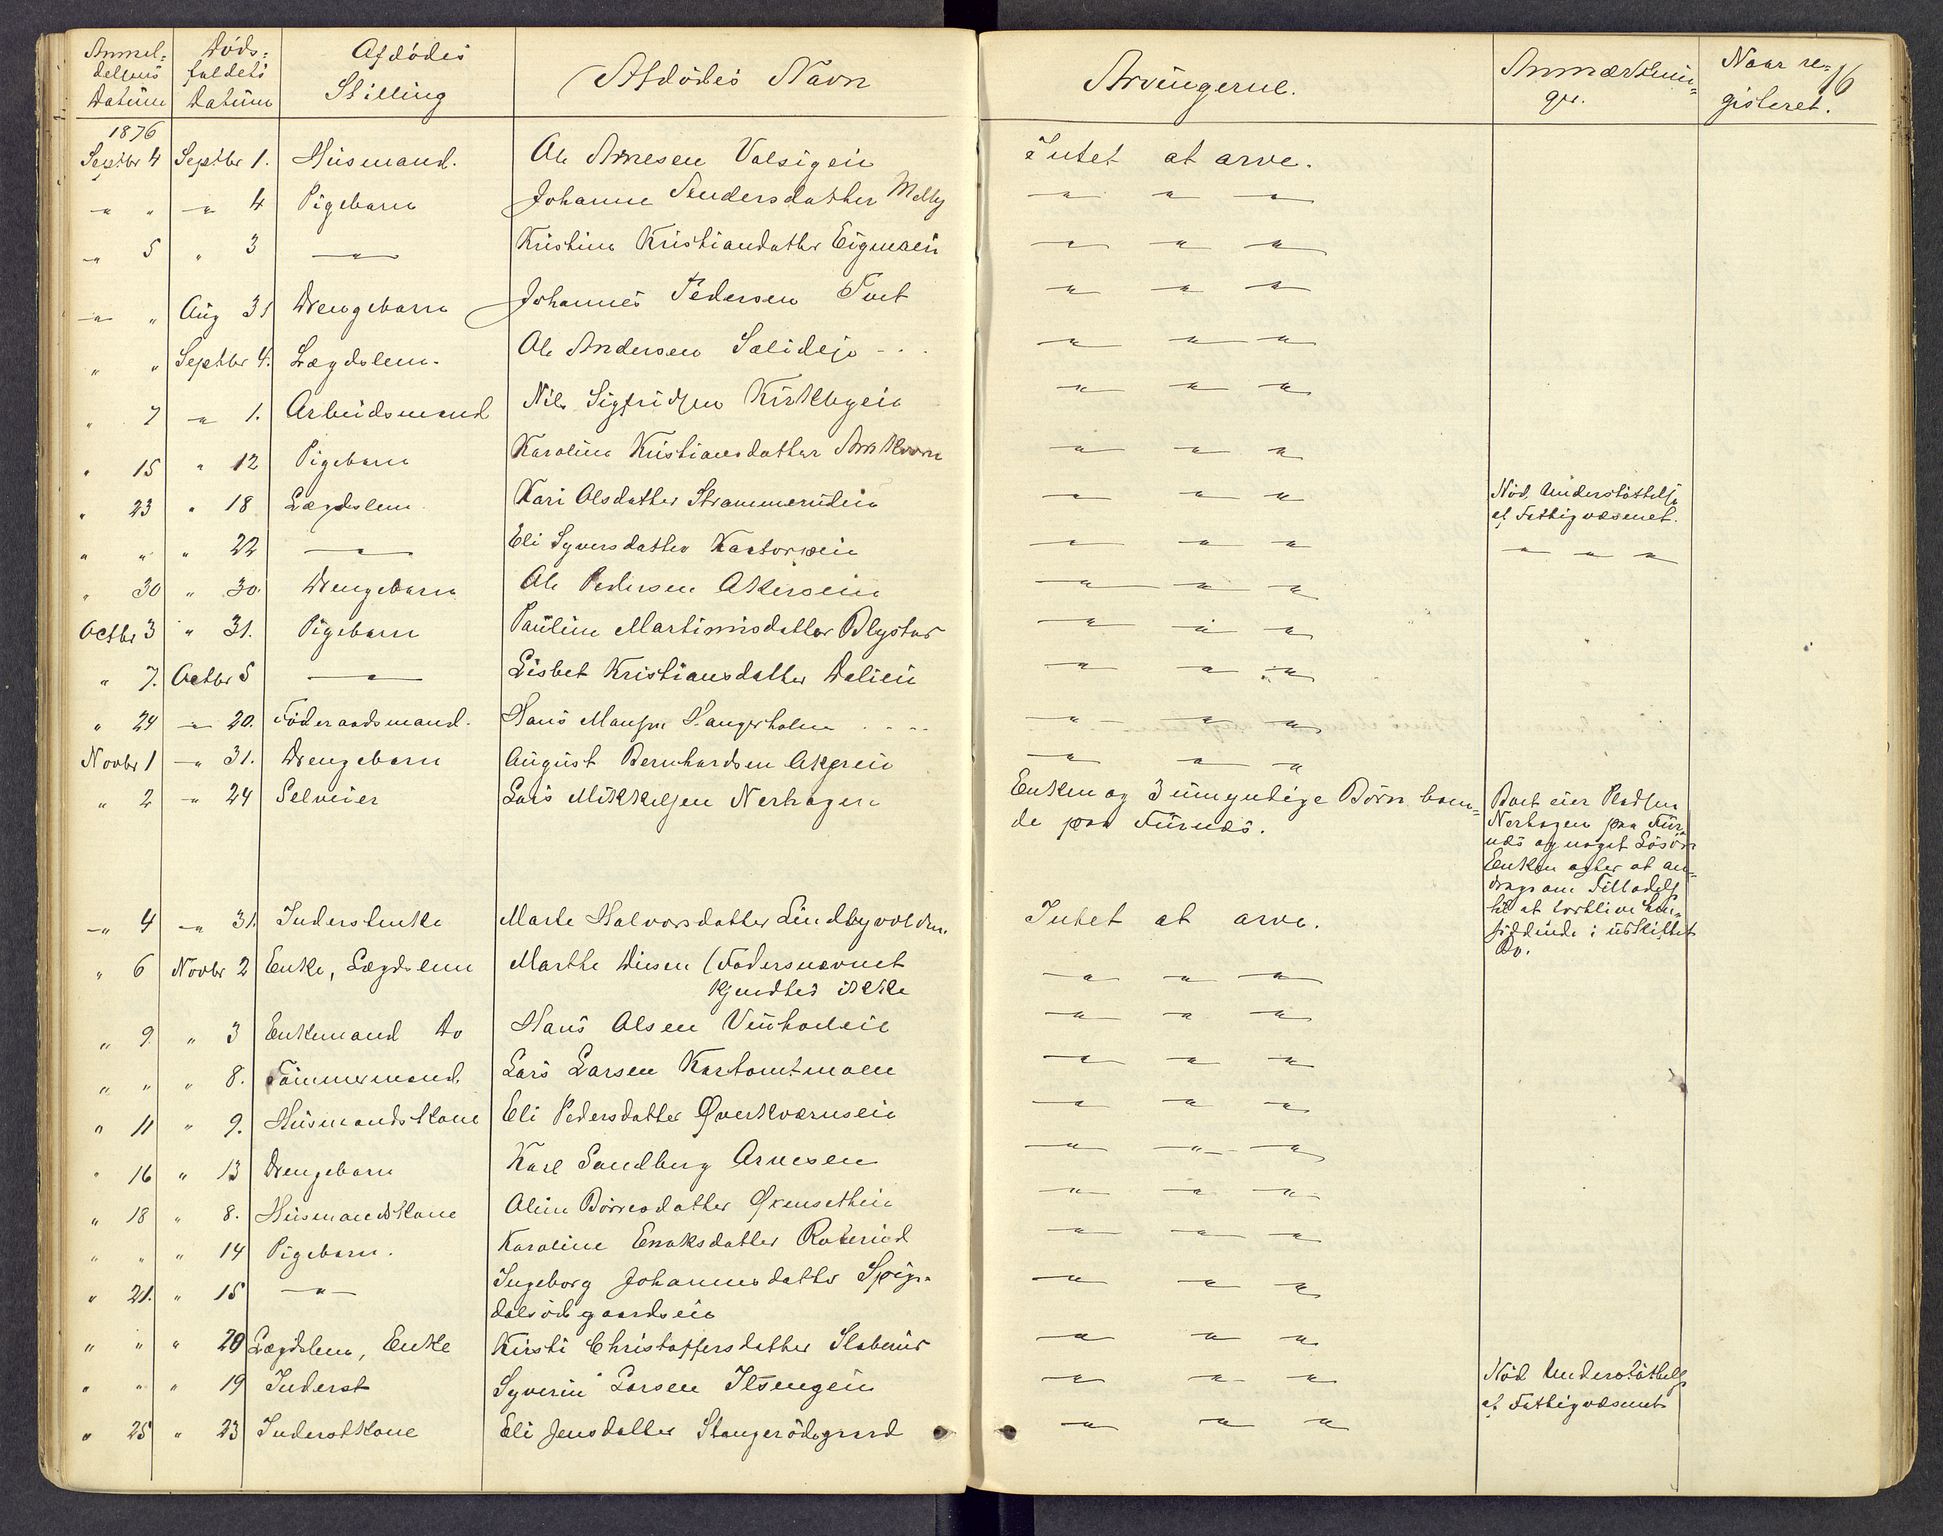 Anmel- Døds- Afdødes Afdødes Navn Arvingerne. Anmærknin- Naar re- 16
delsens faldets Stilling ger. gisteret.
Datum Datum
1876
Septbr 4 Septbr 1. Husmand. Ole Arnesen Valsigeie Intet at arve.
" " " 4 Pigebarn Johanne Andersdatter Melby " " "
" 5 " 3 " Kristine Kristiandatter " " "
" " Aug 31 Drengebarn Johannes Pedersen Tvet " " "
" " Septbr 4. Lægdslem. Ole Andersen " " "
" 7 " 1. Arbeidsmand Nils Sigfridsen Kirkbyeie " " "
" 15 " 12 Pigebarn Karoline Kristiansdatter " " "
" 23 " 18 Lægdslem. Kari Olsdatter Strammerudeie " " " Nød. Understøttelse
af Fattigvæsenet.
" " " 22 " Eli Syversdatter " " " " " "
" 30 " 30. Drengebarn Ole Pedersen Akerseie " " "
Octbr 3 " 31. Pigebarn Pauline Martinusdatter Blystad " " "
" 7. Octbr 5 " Lisbet Kristiansdatter Dalieie " " "
" 24 " 20. Føderaadsmand. Hans Hangerholm " " "
Novbr 1 " 31. Drengebarn August Bernhardsen " " "
" 2 " 24 Selveier Lars Mikkelsen Nerhagen Enken og 3 umyndige Børn boen- Boet eier Pladsen
de paa Furnæs. Nerhagen paa Fur-
næs og noget Løsøre
Enken agter at an-
drage om Tilladelse
til at forblive hen-
siddende i uskiftet
Bo.
" 4 " 31. Inderstenke Marte Halvorsdatter Lindbyvolden. Intet at arve.
" 6 Novbr 2 Enke, Lægdslem Marthe Diesen (Fadersnavnet " " "
kjendtes ikke
" 9 " 3 Enkemand Do Hans Olsen " " "
" " " 8. Tømmermand. Lars Larsen " " "
" 11 " 9. Husmandskone Eli Pedersdatter Øverkværnseie " " "
" 16 " 13 Drengebarn Karl Sandberg Arnesen " " "
" 18 " 8. Husmandskone Oline Børresdatter " " "
" " " 14 Pigebarn. Karoline Enoksdatter " " "
" 21. " 15 " Ingeborg Johannesdatter Spigs- " " "
dalsødegaardseie
" " " 20 Lægdslem, Enke Kirsti Christoffersdatter " " "
" " " 19 Inderst Syverin Larsen " " " Nød Understøttelse
af Fattigvæsenet
" 25 " 23 Inderstkone Eli Jensdatter Stangerødegaard " " "